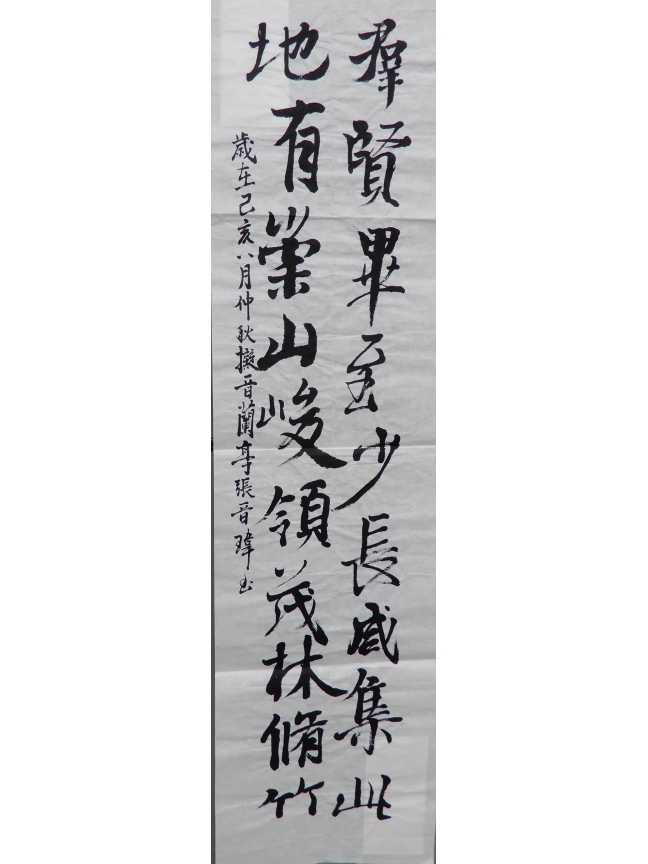 羣賢畢至少長咸集此
地有崇山峻領茂林脩竹
歲在己亥八月仲秋擬晉蘭亭張晉瑋書